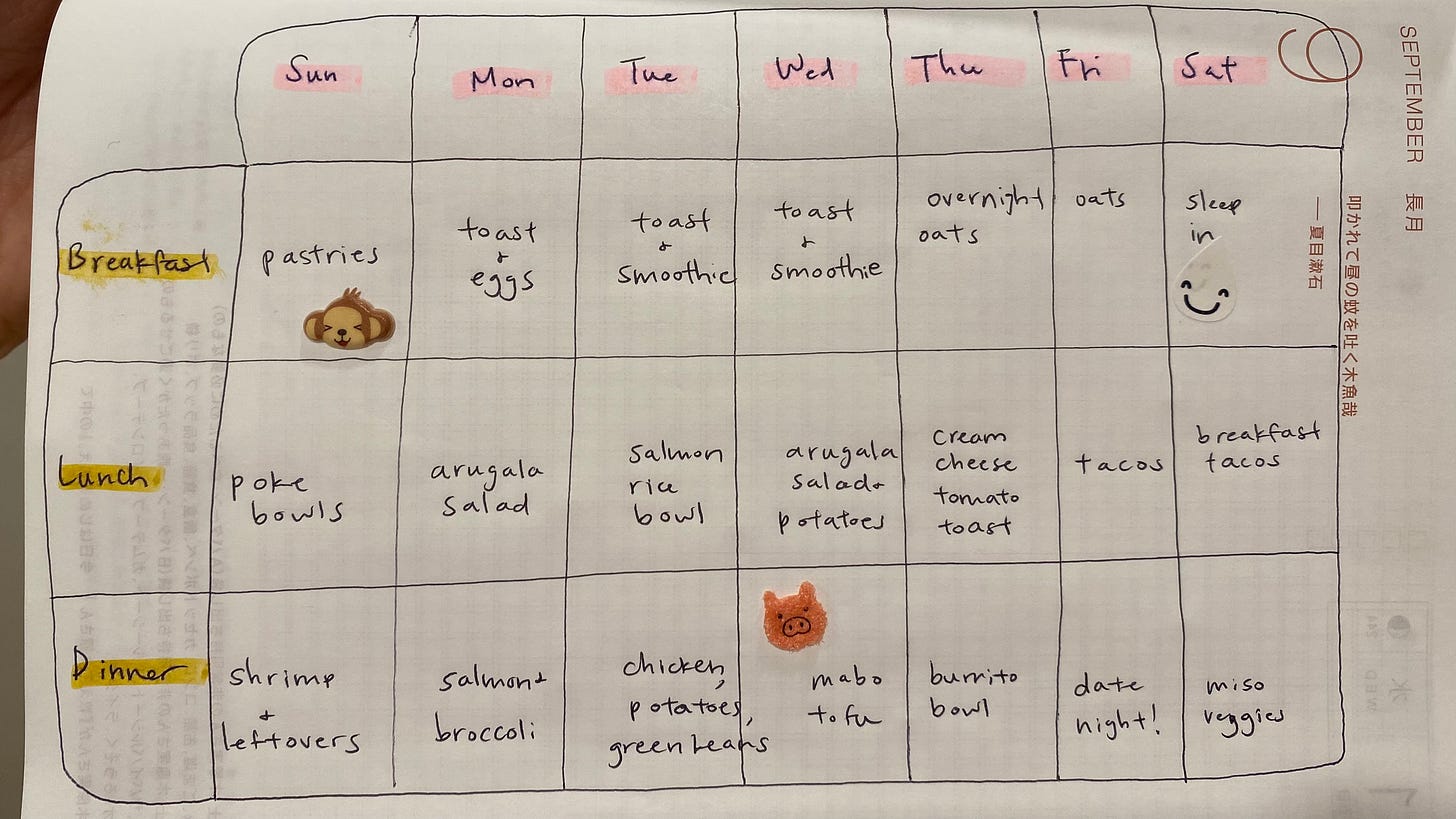 Sun
Mon
Tue
Wed
Thu
Fri
Sat
9
SEPTEMBER 長月
叩かれて昼の蚊を吐く木魚哉
— 夏目漱石
Breakfast
pastries
toast
&
eggs
toast
&
smoothie
toast
&
smoothie
overnight
oats
oats
sleep
in
Lunch
poke
bowls
arugala
salad
salmon
rice
bowl
arugala
salad &
potatoes
cream
cheese
tomato
toast
tacos
breakfast
tacos
Dinner
shrimp
&
leftovers
salmon &
broccoli
chicken,
potatoes,
green beans
mabo
tofu
burrito
bowl
date
night!
miso
veggies